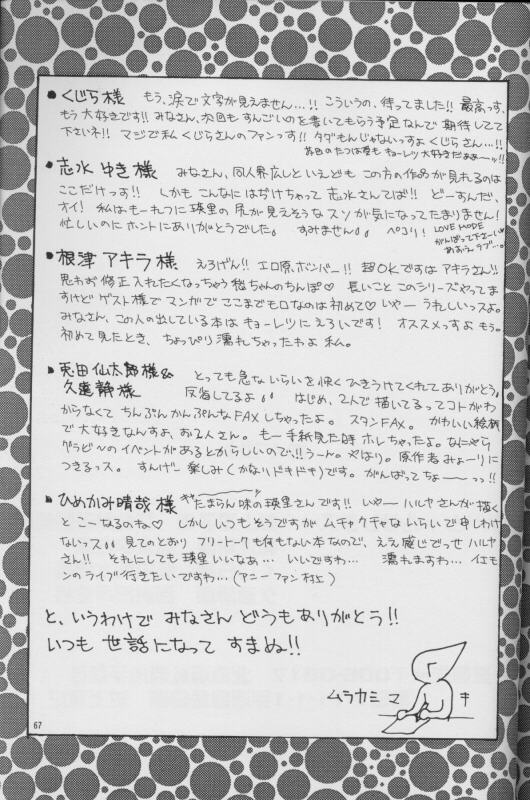 ●くじら様 もう、涙で文字が見えません…!! こういうの、待ってました!! 最高っす、
もう大好きです!! みなさん、次回もすんごいのを書いてもらう予定なんで期待してて
下さいネ!! マジで私くじらさんのファンっす!! タダもんじゃないっすよくじらさん…!!
大好きだぁぁーッ!!
●志水ゆき様 みなさん、同人界広しといえどもこの方の作品が見れるのは
ここだけっす!! しかもこんなにはぢけちゃって志水さんてば!! どーすんだ、
オイ! 私はもーれつに瑛里の尻が見えそうなスソが気になってたまりません!
忙しいのにホントにありがとうでした。 すみません ペコリ!
LOVE MODE
がんばって下さーい
●根津アキラ様 えろげん!! エロ原、ボンバー!! 超OKですはアキラさん!!
思わず修正入れたくなっちゃう
長いことこのシリーズやってま
すけどゲスト様でマンガでここまでモロなのは初めて♡ いやー うれしいっスよ。
みなさん、この人の出している本はキョーレツにえろいです! オススメっすよもう。
初めて見たとき、ちょっぴり濡れちゃったわよ私。
●兎田仙太郎様&
久遠静様 とっても急ないらいを快くひきうけてくれてありがとう。
反省してるよ はじめ、2人で描いてるってコトがわ
からなくてちんぷんかんぷんなFAXしちゃったよ。 スタンFAX。 かわいい絵柄
で大好きなんすよ、お2人さん。 もー手紙見た時ホレちゃったよ。なにやら
グラビ〜のイベントがあるとからしいので、!! うーん。やはり。 原作者みょーりに
つきるっス。 すんげー楽しみ(かなりドキドキ)です。 がんばってちょーーっ!!
●ひめかみ晴哉様 たまらん味の瑛里さんです!! いやーハルヤさんが描く
とこーなるのね♡ しかしいつもそうですがムチャクチャないらいで申しわけ
ないッス 見てのとおりフリートークも何もない本なので、ええ感じでっせハルヤ
さん!! それにしても瑛里いいなぁ… いいですわ… 濡れますわ… イエモ
ンのライブ行きたいですわ…(アニーファン村上)
と、いうわけでみなさんどうもありがとう!!
いつも世話になってすまぬ!!
ムラカミマキ
67